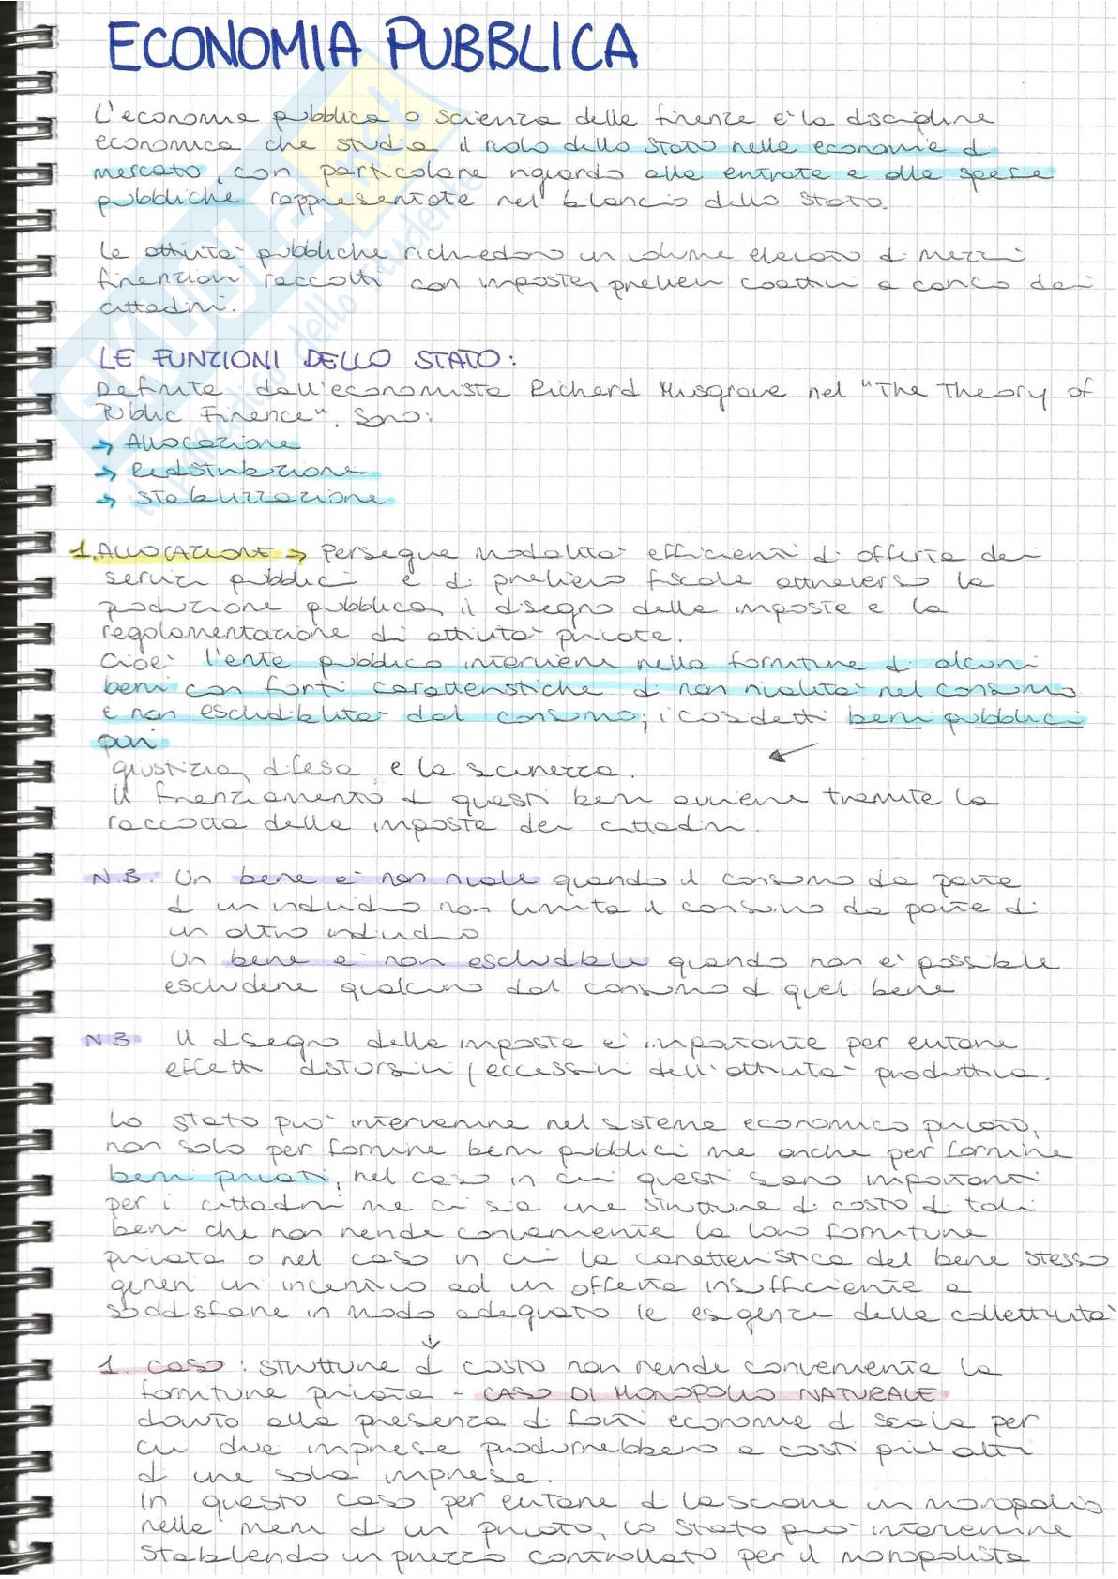 ECONOMIA PUBBLICA
L'economia pubblica o scienza delle finanze è la disciplina
economica che studia il ruolo dello Stato nelle economie di
mercato, con particolare riguardo alle entrate e alle spese
pubbliche rappresentate nel bilancio dello Stato.
Le attività pubbliche richiedono un volume elevato di mezzi
finanziari raccolti con imposte, prelievi coattivi a carico dei
cittadini.
LE FUNZIONI DELLO STATO:
Definite dall'economista Richard Musgrave nel "The Theory of
Public Finance". Sono:
→ Allocazione
→ Redistribuzione
→ Stabilizzazione
1. ALLOCAZIONE → Persegue modalità efficienti di offerta dei
servizi pubblici e di prelievo fiscale attraverso la
produzione pubblica, il disegno delle imposte e la
regolamentazione di attività private.
Cioè l'ente pubblico interviene nella fornitura di alcuni
beni con forti caratteristiche di non rivalità nel consumo
e non escludibilità dal consumo; i cosidetti beni pubblici
puri
giustizia, difesa e la sicurezza.
Il finanziamento di questi beni avviene tramite la
raccolta delle imposte dei cittadini.
N.B. Un bene è non rivale quando il consumo da parte
di un individuo non limita il consumo da parte di
un altro individuo
Un bene è non escludibile quando non è possibile
escludere qualcuno dal consumo di quel bene
N.B Il disegno delle imposte è importante per evitare
effetti distorsivi/eccessivi dell'attività produttiva.
Lo stato può intervenire nel sistema economico privato,
non solo per fornire beni pubblici ma anche per fornire
beni privati, nel caso in cui questi siano importanti
per i cittadini ma ci sia una struttura di costo di tali
beni che non rende conveniente la loro fornitura
privata o nel caso in cui la caratteristica del bene stesso
generi un incentivo ad un offerta insufficiente a
soddisfare in modo adeguato le esigenze della collettività
↓
1. caso: struttura di costo non rende conveniente la
fornitura privata - CASO DI MONOPOLIO NATURALE
dovuto alla presenza di forti economie di scala per
cui due imprese produrrebbero a costi più alti
di una sola impresa.
In questo caso per evitare di lasciare un monopolio
nelle mani di un privato, lo Stato può intervenire
stabilendo un prezzo controllato per il monopolista